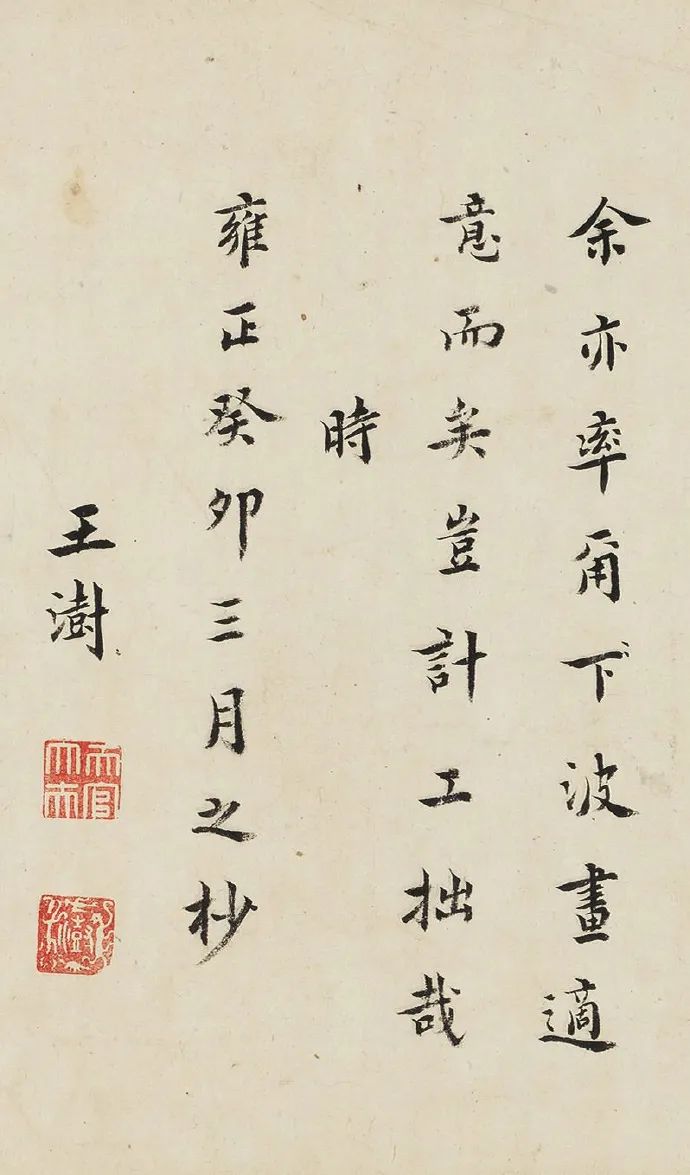 余亦率甬下波畫適
意而矣豈計工拙哉
時
雍正癸卯三月之杪
王澍